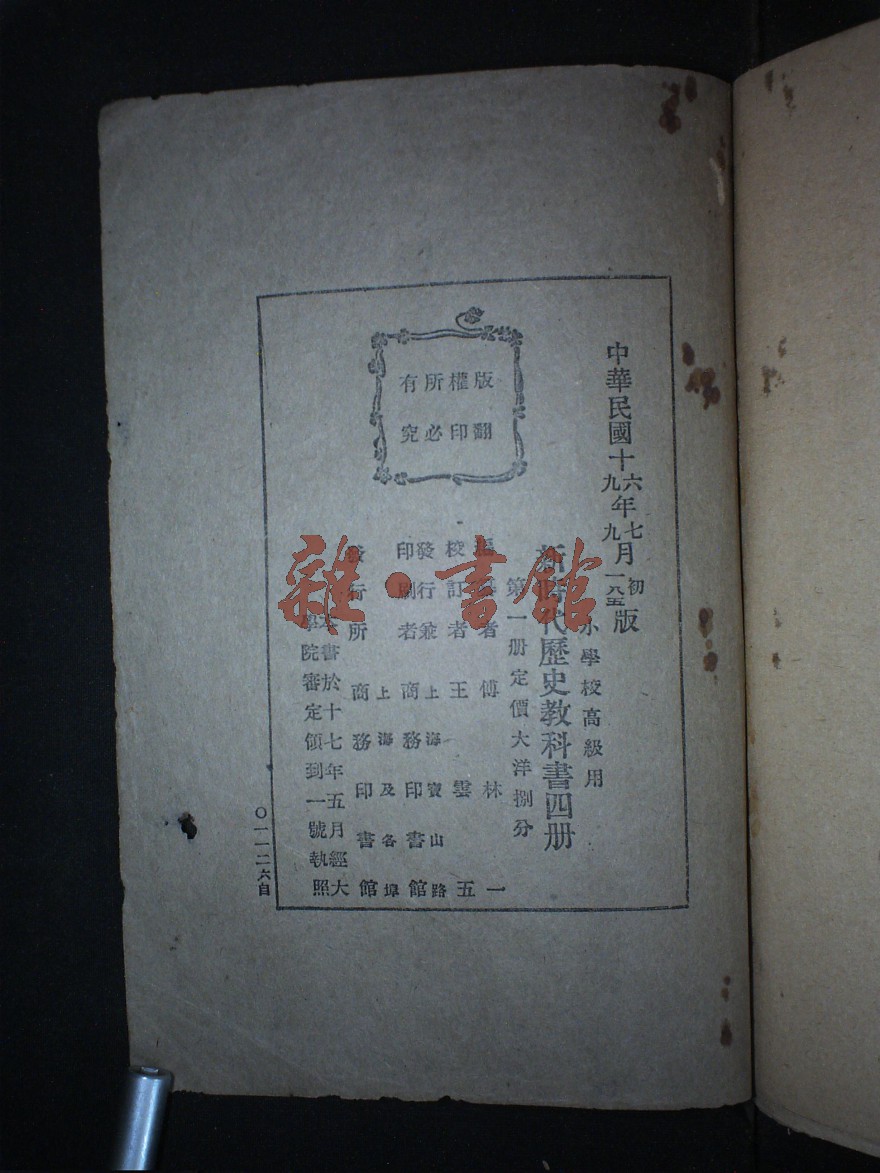 中華民國十六年七月初版
九年九月一六五版
小學校高級用
新時代歷史教科書四册
第一册定價大洋捌分
編纂者 傅林一
校訂者 王雲五
發行兼印刷者 上海寶山路 商務印書館
發行所 上海及各埠 商務印書館
版權所有
翻印必究
本書於十七年五月經大
學院審定領到一號執照
〇一一二六自
雜·書館